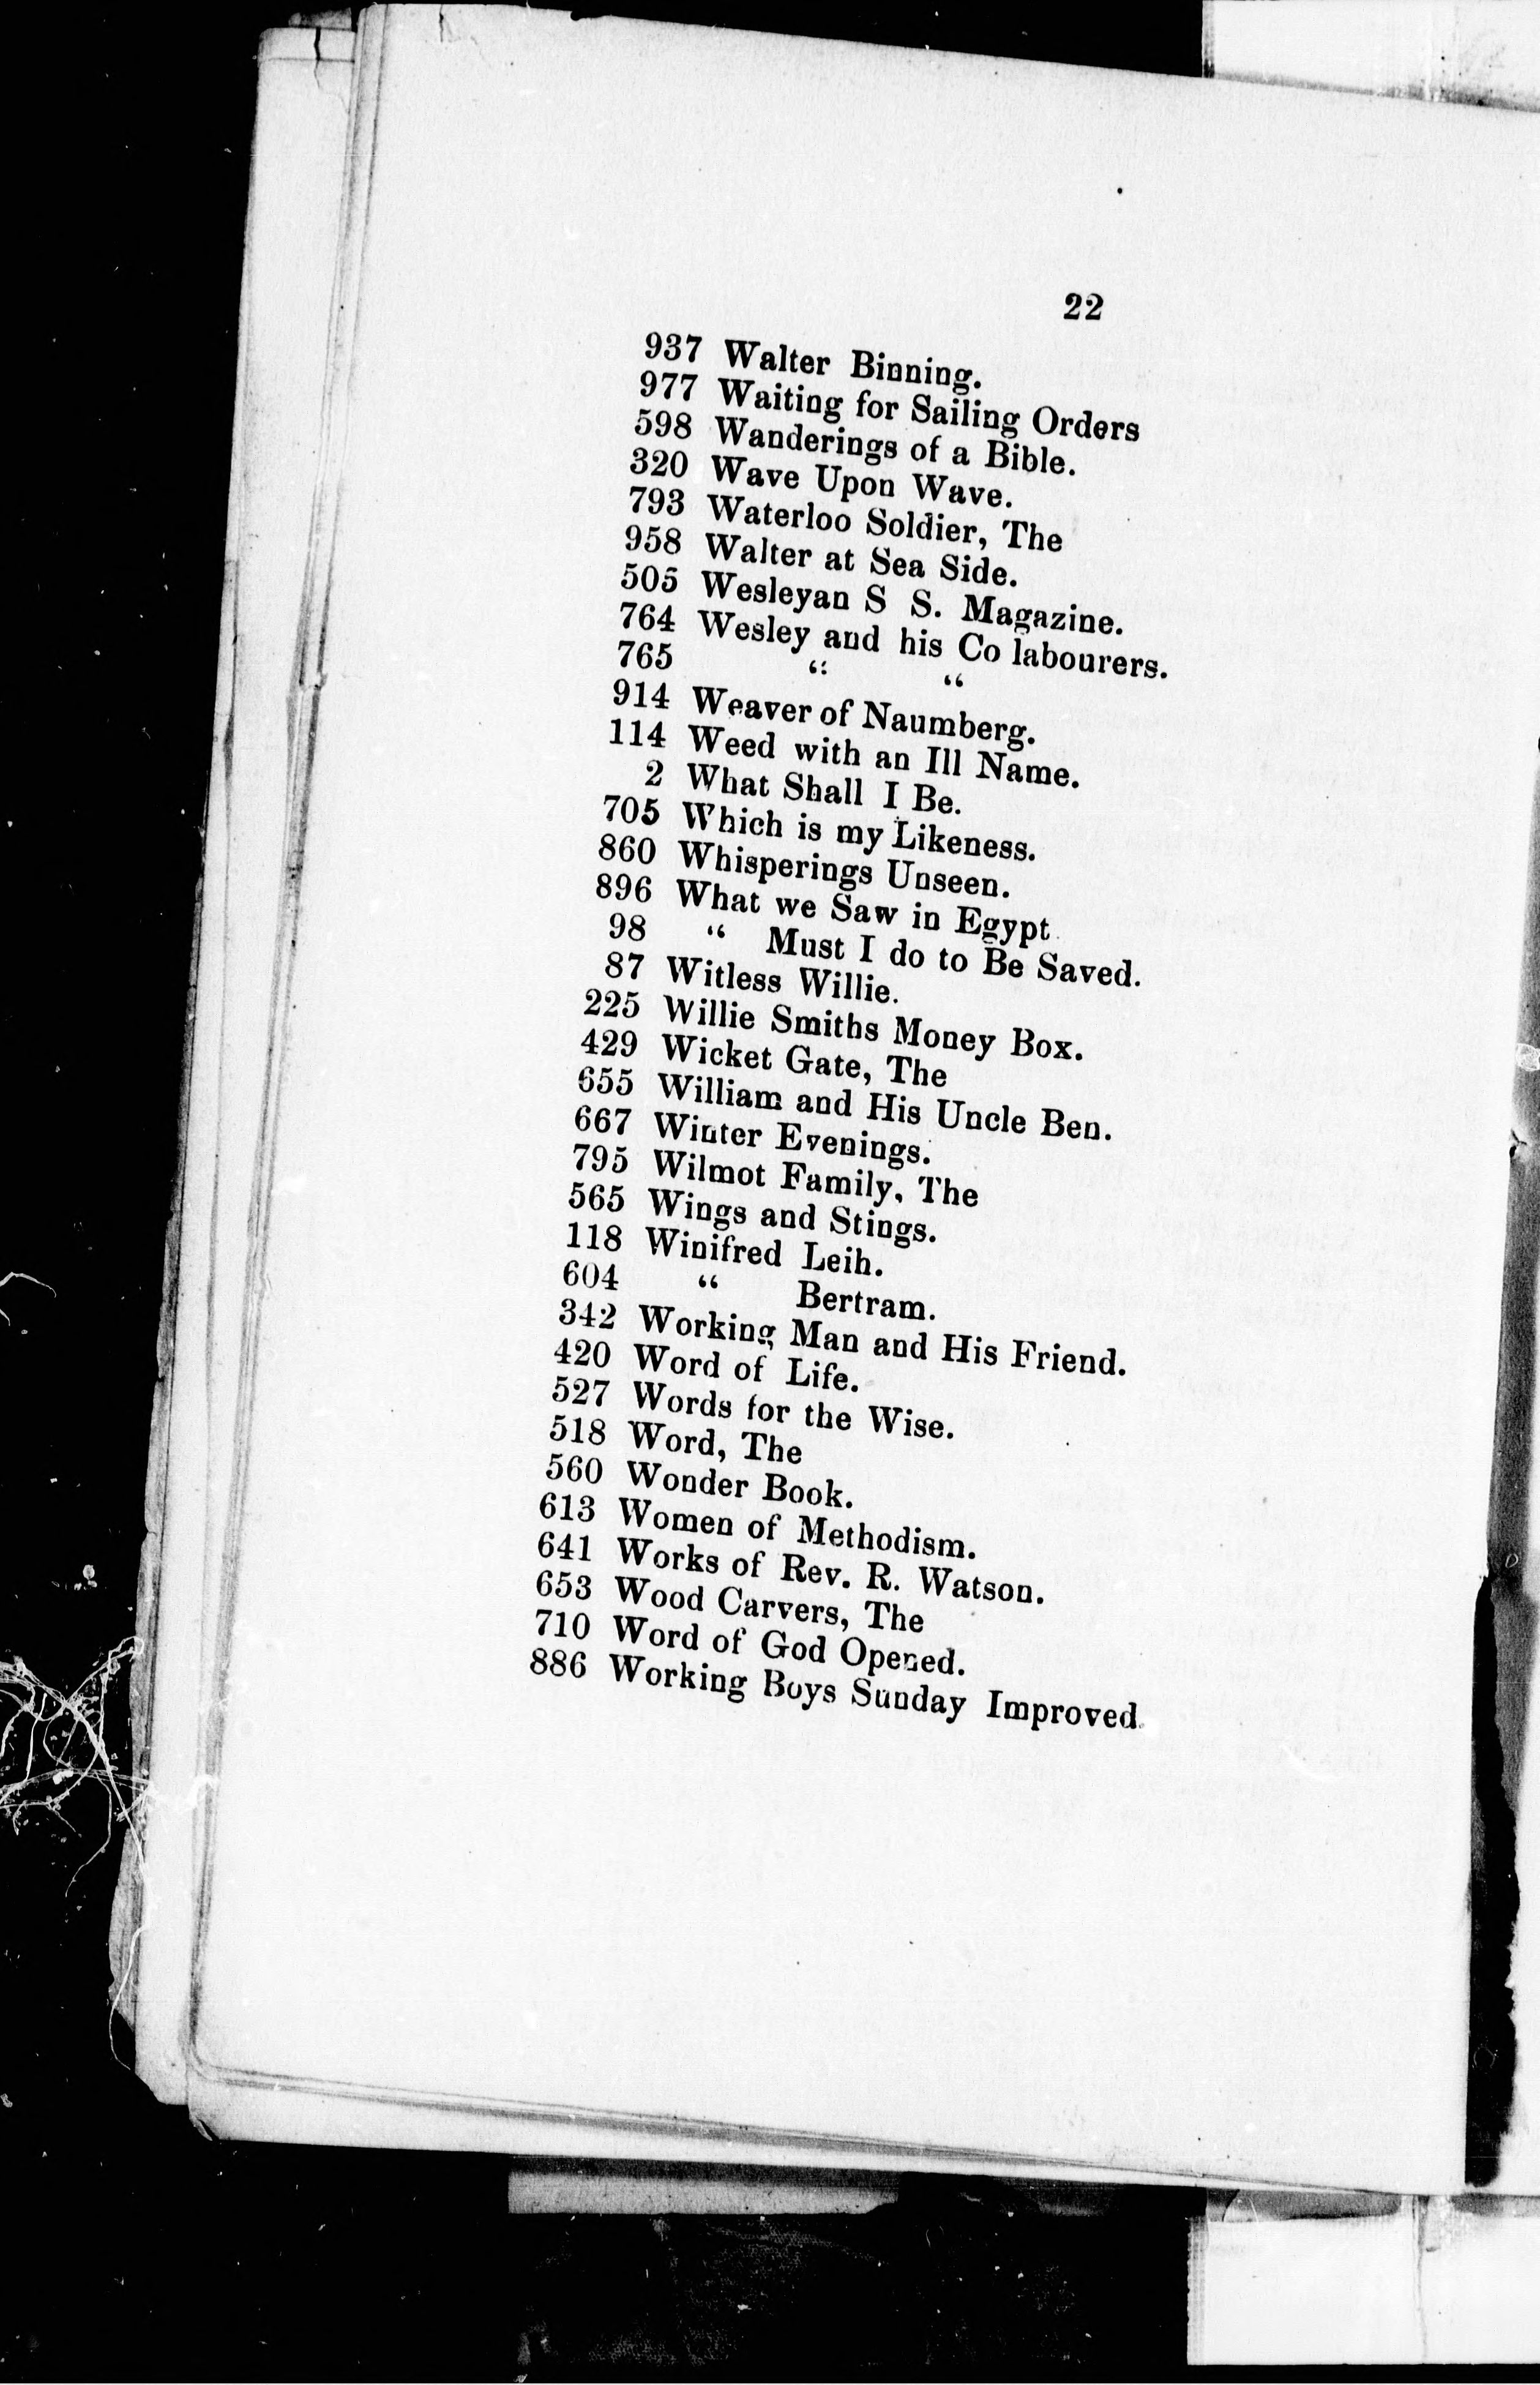 22
937 Walter Binning.
977 Waiting for Sailing Orders
598 Wanderings of a Bible.
320 Wave Upon Wave.
793 Waterloo Soldier, The
958 Walter at Sea Side.
505 Wesleyan S S. Magazine.
764 Wesley and his Co labourers.
765 “ “
914 Weaver of Naumberg.
114 Weed with an Ill Name.
2 What Shall I Be.
705 Which is my Likeness.
860 Whisperings Unseen.
896 What we Saw in Egypt.
98 “ Must I do to Be Saved.
87 Witless Willie.
225 Willie Smiths Money Box.
429 Wicket Gate, The
655 William and His Uncle Ben.
667 Winter Evenings.
795 Wilmot Family, The
565 Wings and Stings.
118 Winifred Leih.
604 “ Bertram.
342 Working Man and His Friend.
420 Word of Life.
527 Words for the Wise.
518 Word, The
560 Wonder Book.
613 Women of Methodism.
641 Works of Rev. R. Watson.
653 Wood Carvers, The
710 Word of God Opened.
886 Working Boys Sunday Improved.